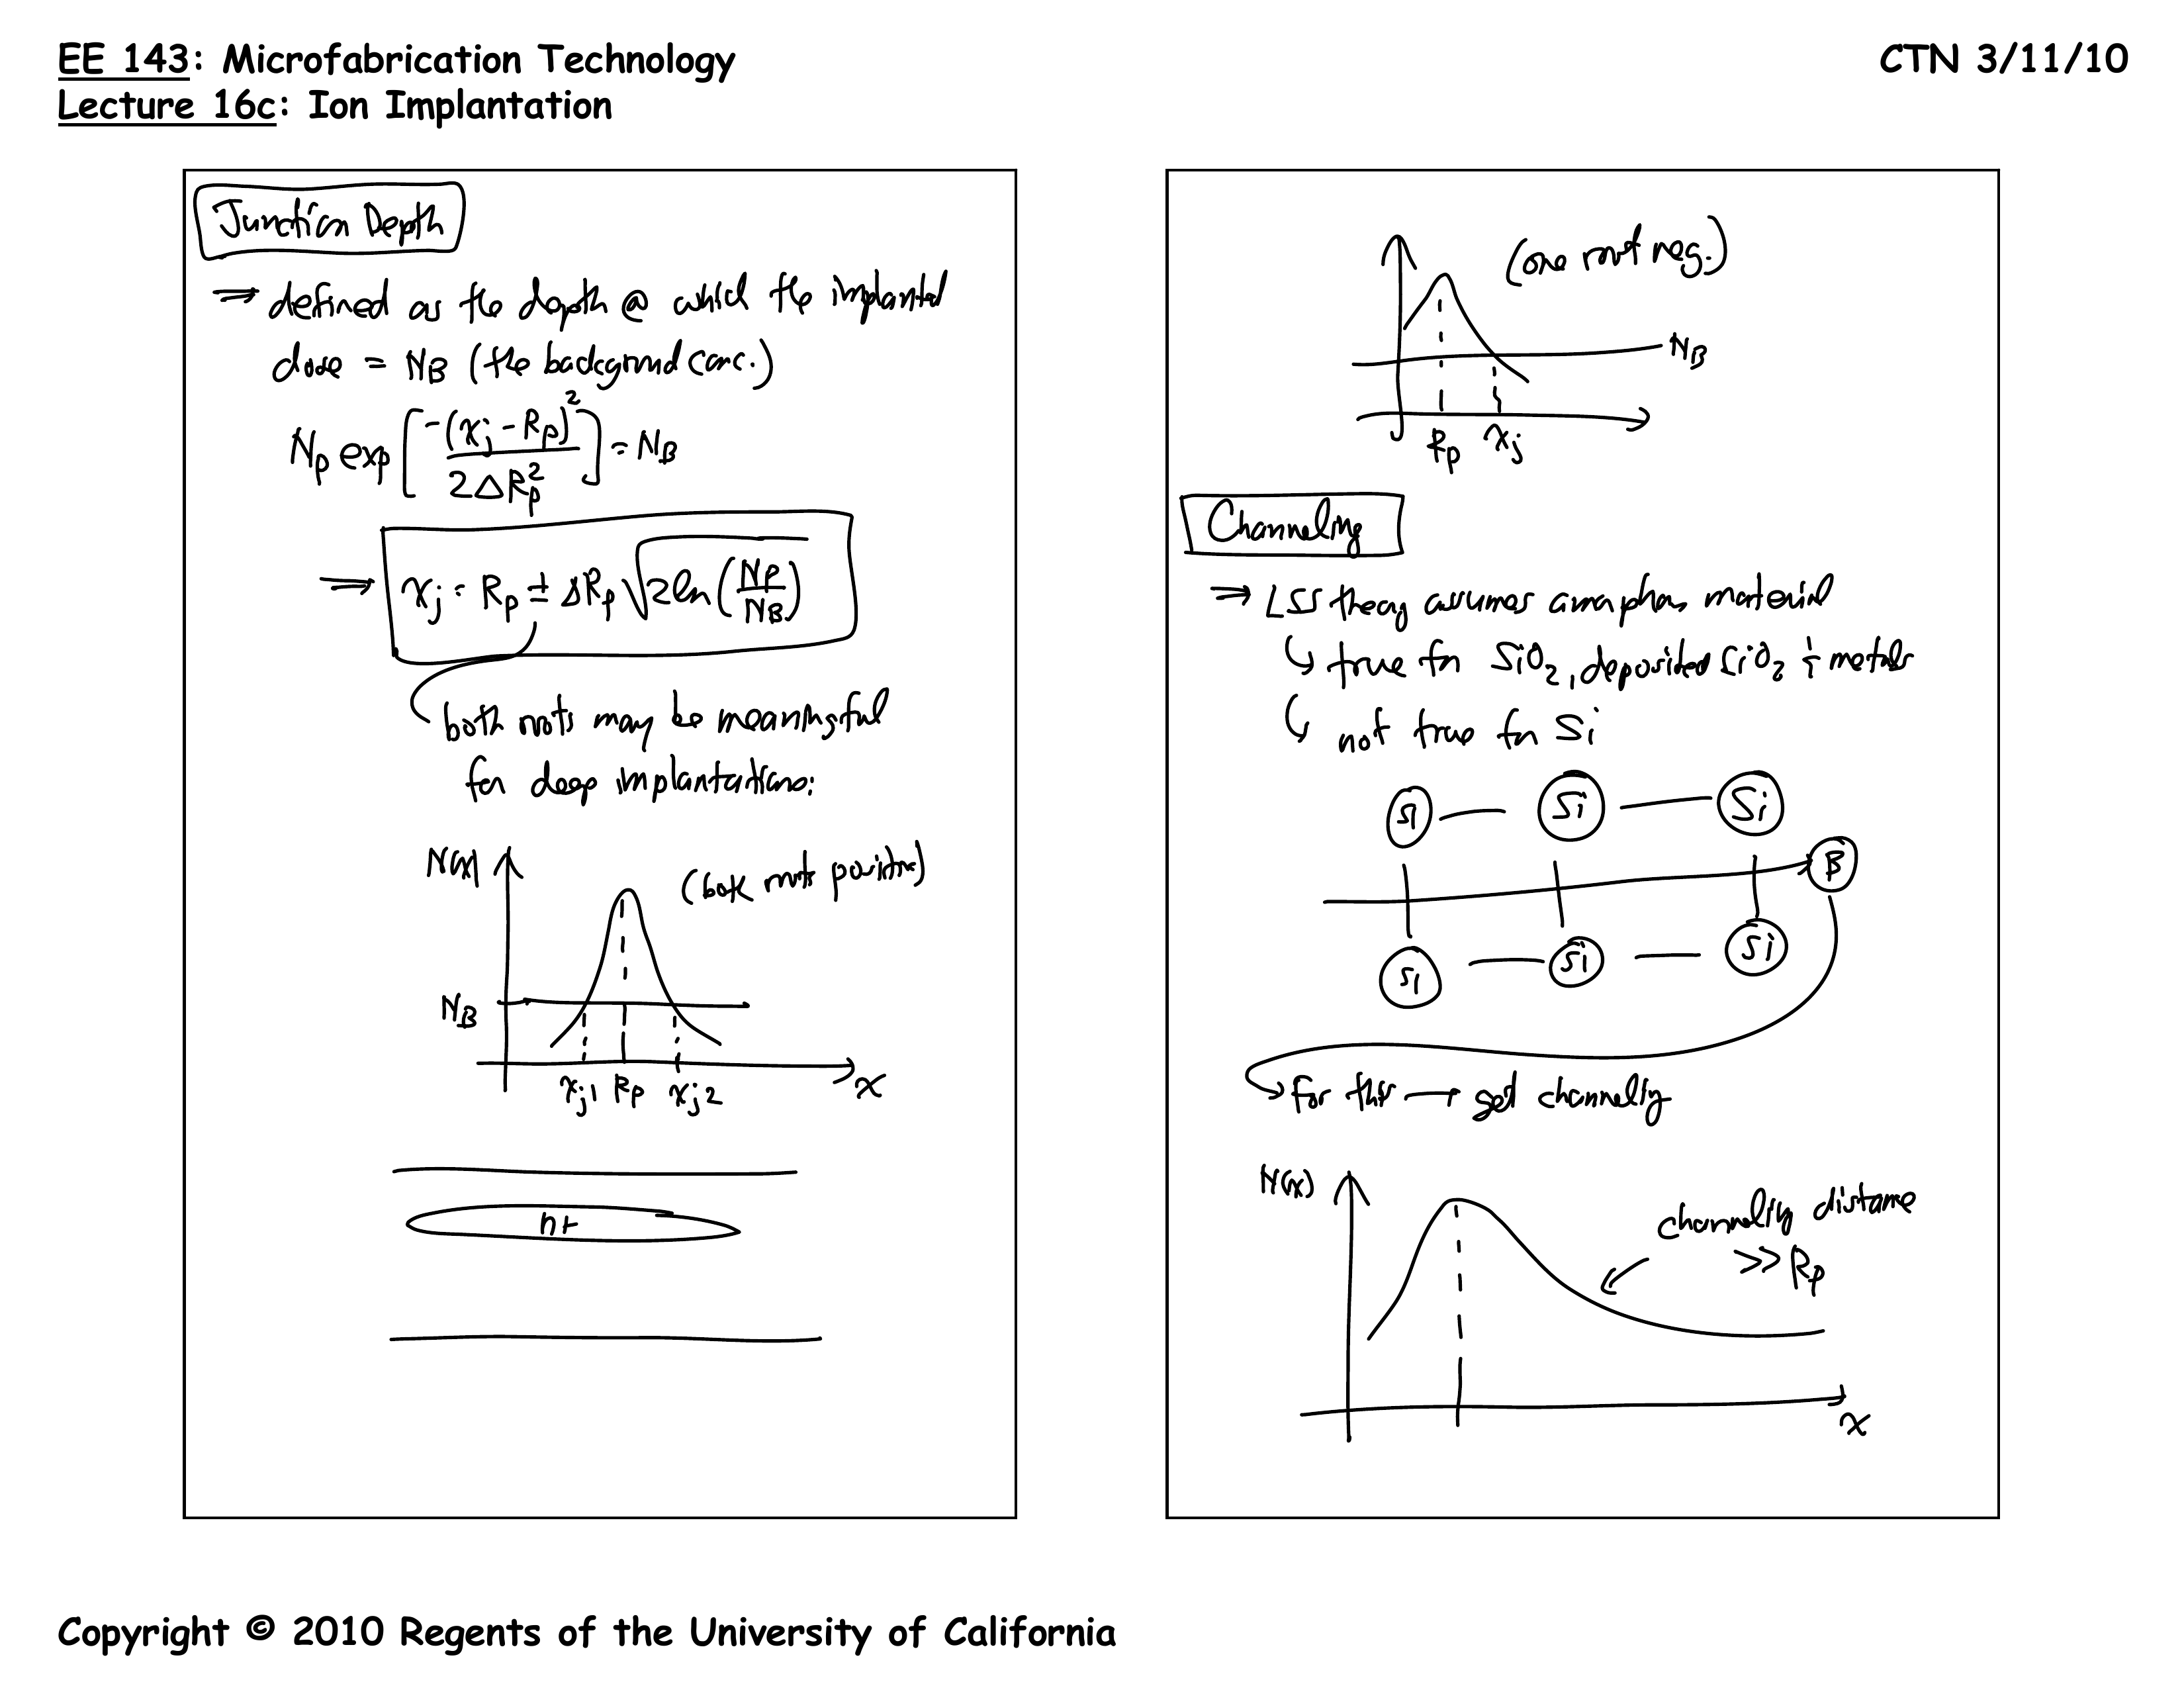 EE 143: Microfabrication Technology
Lecture 16c: Ion Implantation
CTN 3/11/10
Junction Depth
⇒ defined as the depth @ which the implanted
dose = NB (the background conc.)
Np exp[-(xj - Rp)²/2ΔRp²] = NB
⇒ xj = Rp ± ΔRp √(2ln(Np/NB))
both roots may be meaningful
for deep implantations:
N(x)
(both roots positive)
NB
xj1 Rp xj2
x
n+
(one root neg.)
NB
Rp xj
Channeling
⇒ LSS theory assumes amorphous material
↳ true for SiO2, deposited SiO2 & metals
↳ not true for Si
Si — Si — Si
B
Si — Si — Si
↳ For this → get channeling
N(x)
channeling distance
>> Rp
x
Copyright © 2010 Regents of the University of California